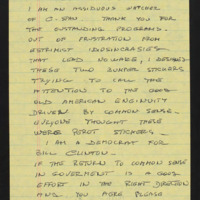 I AM AN ASSIDUOUS WATCHER
OF C-SPAN THANK YOU FOR
THE OUTSTANDING PROGRAMS.
OUT OF FRUSTRATION FROM
EXTREMIST IDIOSINCRASIES
THAT LEAD NOWHERE, I DESIGNED
THESE TWO BUMPER STICKERS
TRYING TO CALL THE
ATTENTION TO THE GOOD
OLD AMERICAN ENGINUITY
DRIVEN BY COMMON SENSE.
EVERYONE THOUGHT THESE
WERE PEROT STICKERS.
I AM A DEMOCRAT FOR
BILL CLINTON.
IF THE RETURN TO COMMON SENSE
IN GOVERMENT IS A GOOD
EFFORT IN THE RIGHT DIRECTION
AND YOU AGREE PLEASE